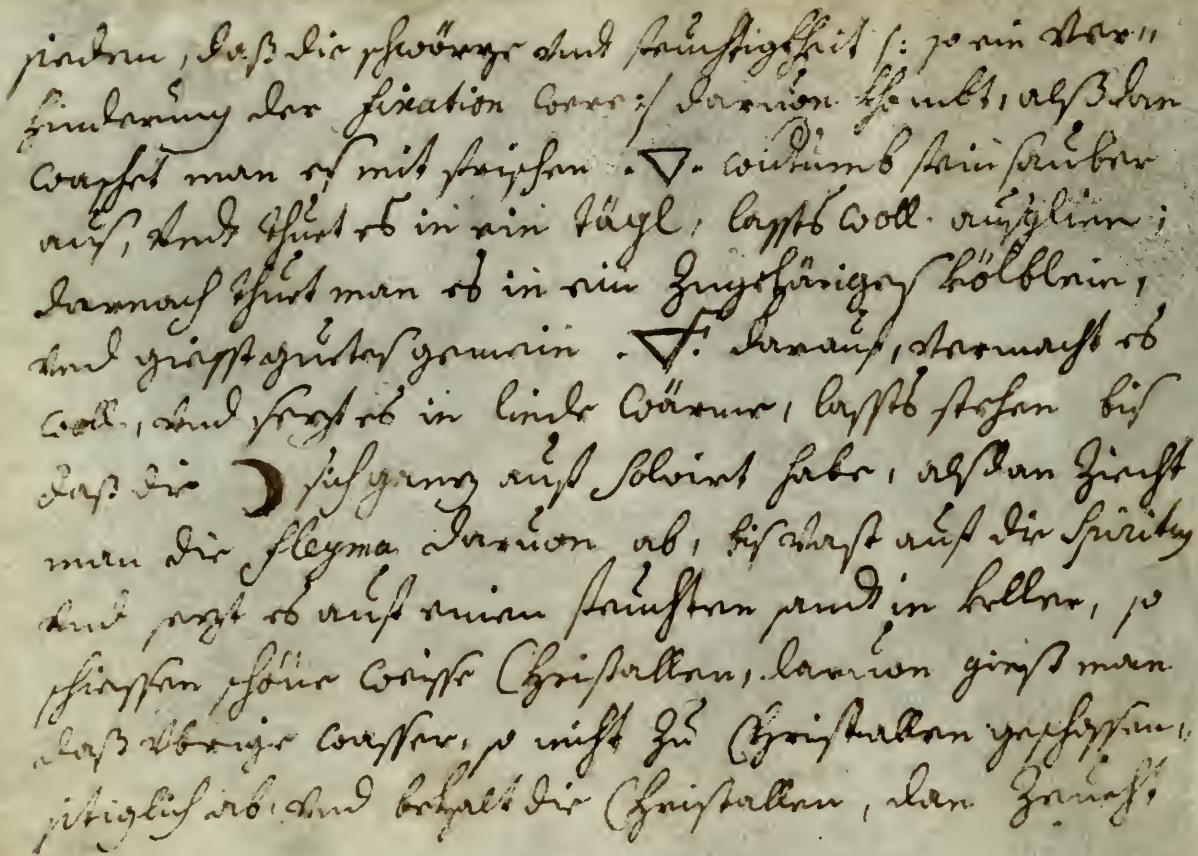 sieden, daß die schwörze vnd feuchtigkheit /: so ein Ver„
hinderung der fixation were :/ daruon khombt, alß dan
waschet man es mit frischen .▽. widrumb fein sauber
aus, vnd thuet es in ein tägl, lassts woll ausglien;
darnach thuet man es in ein Zugehöriges kölblein,
vnd giesst guetes gemein .🜅. darauf, vermacht es
woll, vnd sezt es in linde wärme, lassts stehen bis
daß die ☽ sich ganz auf soluirt habe, alßdan Ziecht
man die flegma daruon ab, bis vast auf die
vnd sezt es auf einen feuchten sandt in keller, so
schiessen schöne weisse Christallen, daruon giest man
daß vbrige wasser, so nicht zu Christallen geschossen„
sitiglich ab, vnd behalt die Christallen, dan Zeucht